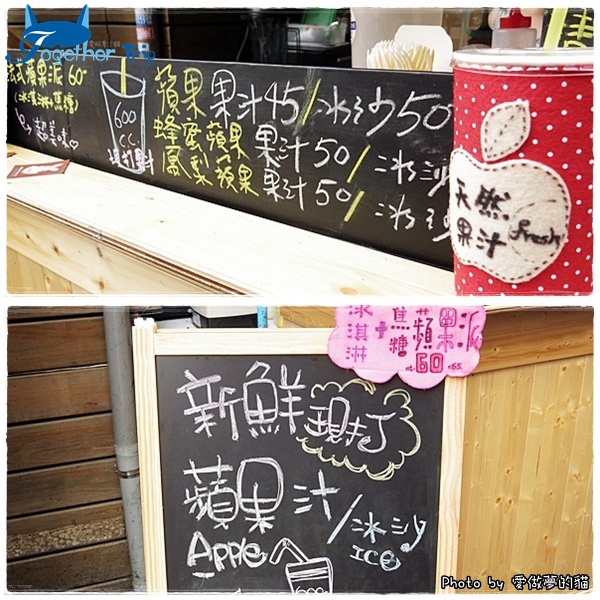 Together Try
愛做夢的貓
法式蘋果派 60
(冰淇淋+焦糖)
超美味♡
600
C.C.
現打果汁
蘋果果汁45/冰沙50
蜂蜜蘋果果汁50/冰沙
鳳梨蘋果果汁50/冰沙
天然
果汁 fresh
冰淇淋+焦糖蘋果派
60
新鮮現打
蘋果汁/冰沙
Apple ICE
Photo by 愛做夢的貓